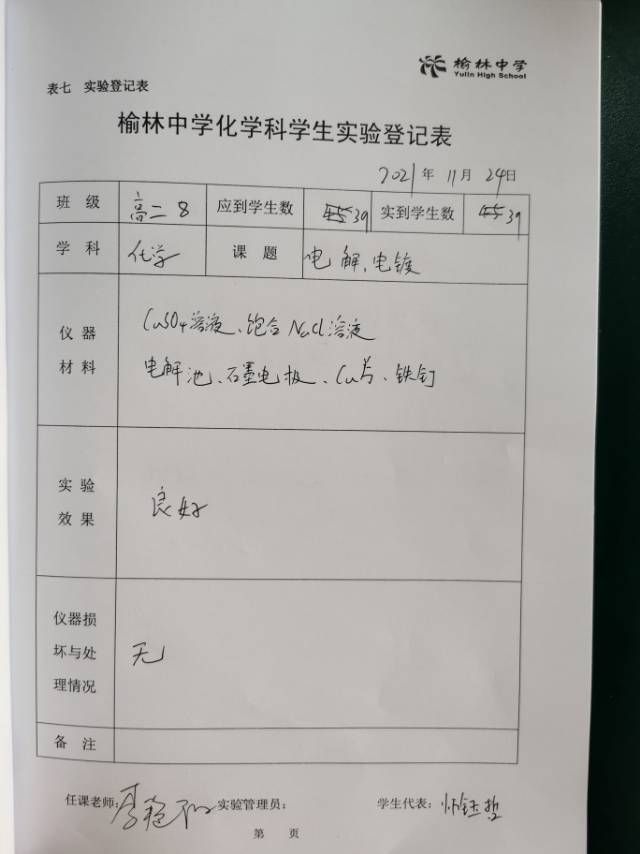 榆林中学
Yulin High School
表七 实验登记表
榆林中学化学科学生实验登记表
2021年 11月 24日
班 级 高二8 应到学生数 39 实到学生数 39
学 科 化学 课 题 电解、电镀
仪 器
材 料
CuSO4溶液、饱合NaCl溶液
电解池、石墨电极、Cu片、铁钉
实 验
效 果
良好
仪器损
坏与处
理情况
无
备 注
任课老师: 实验管理员: 学生代表:
第 页